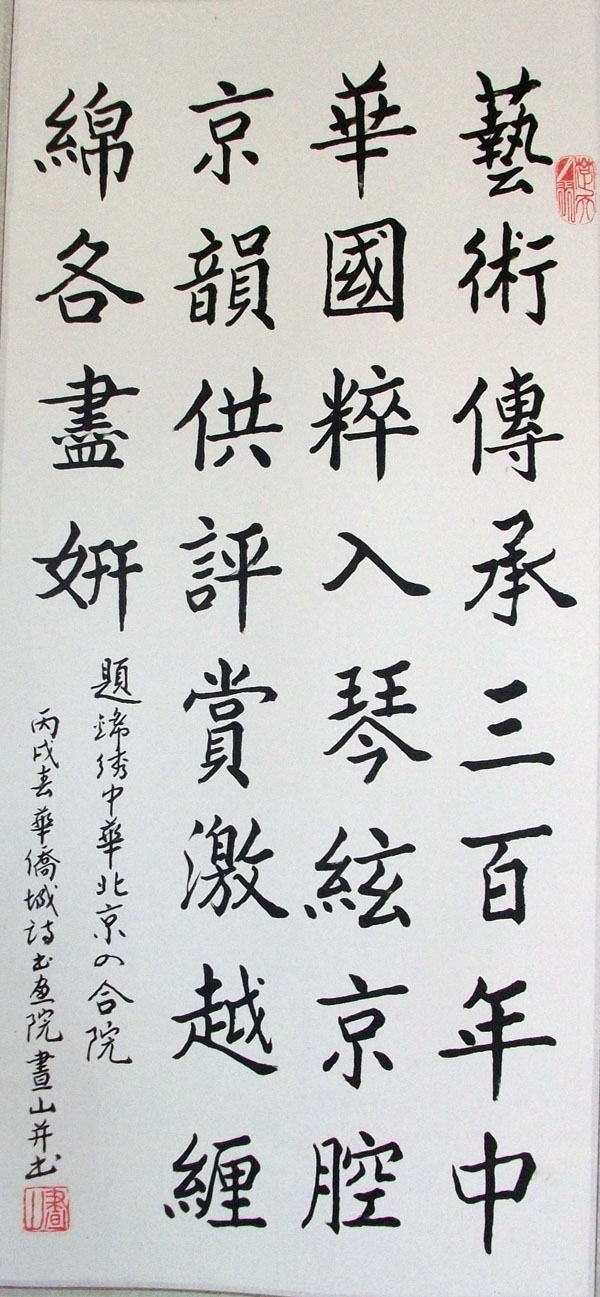 藝術傳承三百年中
華國粹入琴絃京腔
京韻供評賞激越纏
綿各盡妍
題錦綉中華北京四合院
丙戌春華僑城詩书畫院晝山并书
晝山